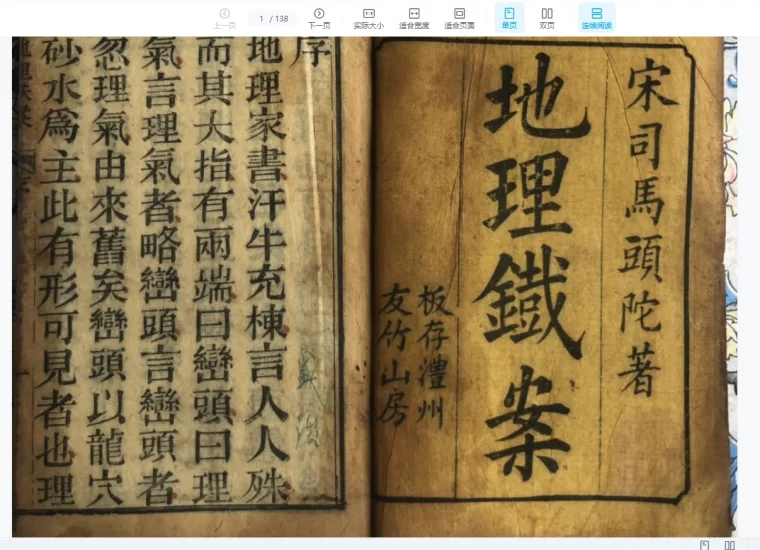 上一页
1 / 138
下一页
实际大小
适合宽度
适合页面
单页
双页
连续阅读
宋司馬頭陀著
地理鐵案
板存澧州
友竹山房
序
地理家書汗牛充棟言人人殊
而其大指有兩端曰巒頭曰理
氣言理氣者略巒頭言巒頭者
忽理氣由來舊矣巒頭以龍穴
砂水為主此有形可見者也理